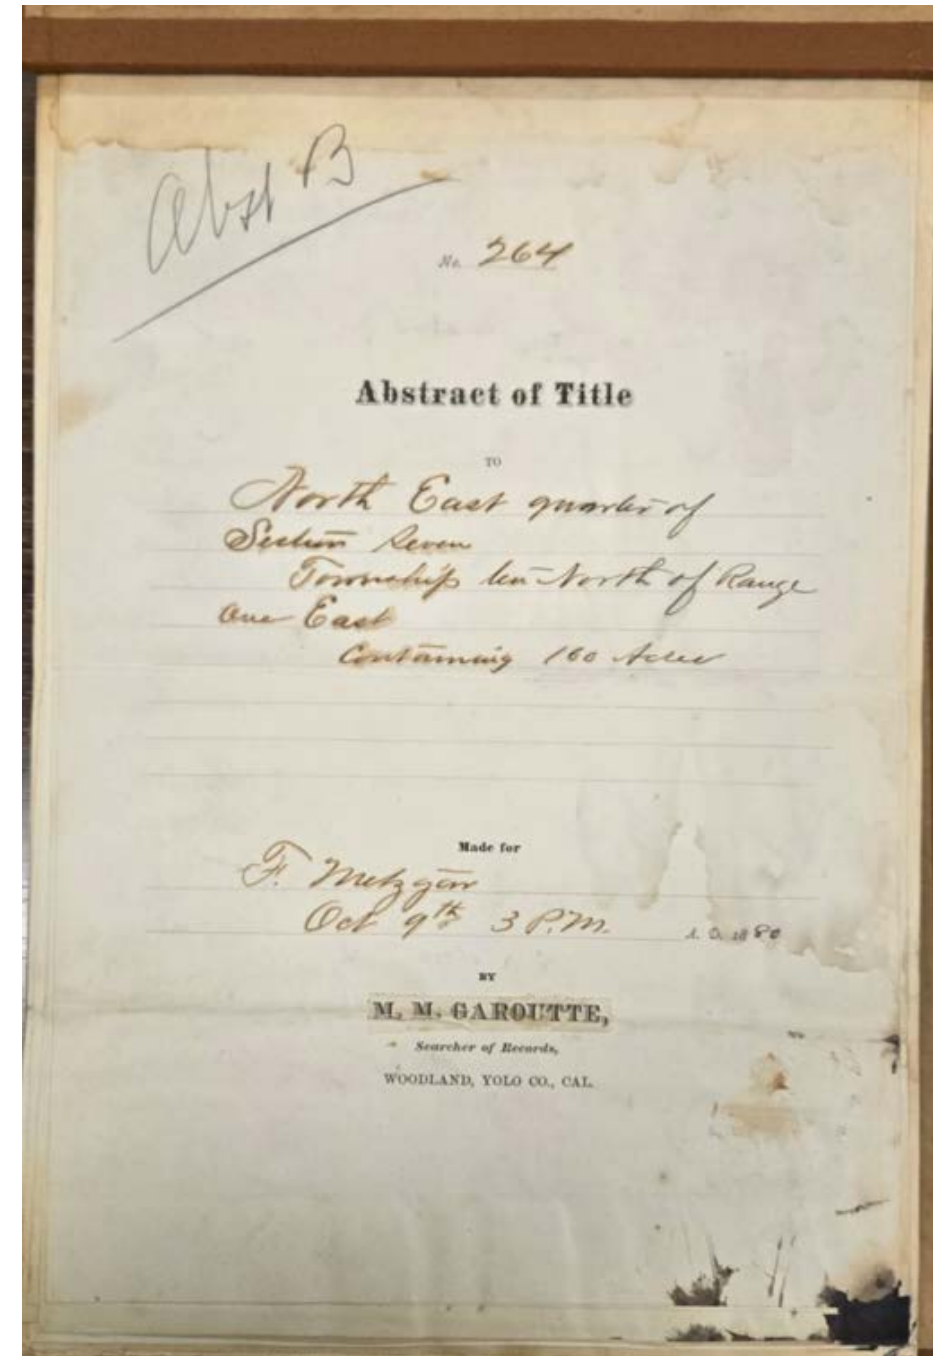 Abst B
No. 264
Abstract of Title
TO
North East quarter of
Section Seven
Township ten North of Range
One East
Containing 160 Acres
Made for
F. Metzgar
Oct 9th 3 P.M. A. D. 1880
BY
M. M. GAROUTTE,
Searcher of Records,
WOODLAND, YOLO CO., CAL.